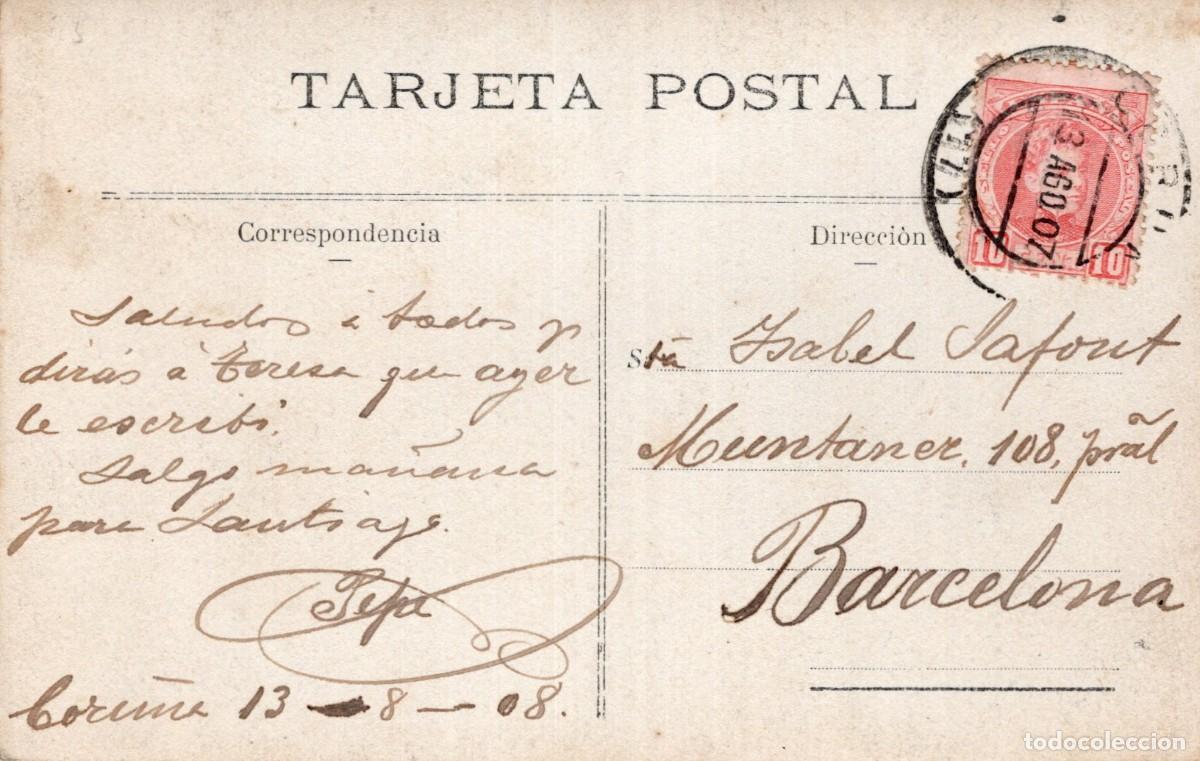 TARJETA POSTAL
Correspondencia
Saludos á todos y
dirás á Teresa que ayer
le escribí.
Salgo mañana
para Santiago.
Pepe
Coruña 13 - 8 - 08.
Dirección
Srta Isabel Lafont
Muntaner, 108, pral
Barcelona
13 AGO 07
10 10
todocoleccion